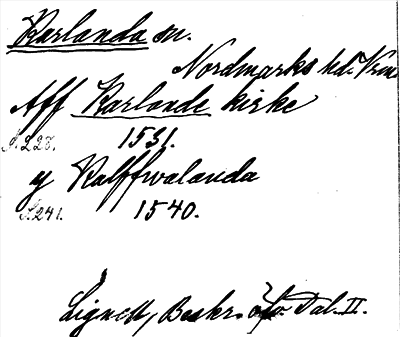 Karlanda sn.
Nordmarks hd. Vrm
Aff Karlande kirke
S. 223. 1531.
y Kalffwalanda
S. 241. 1540.
Lignell, Beskr. öfv. Dal. II.